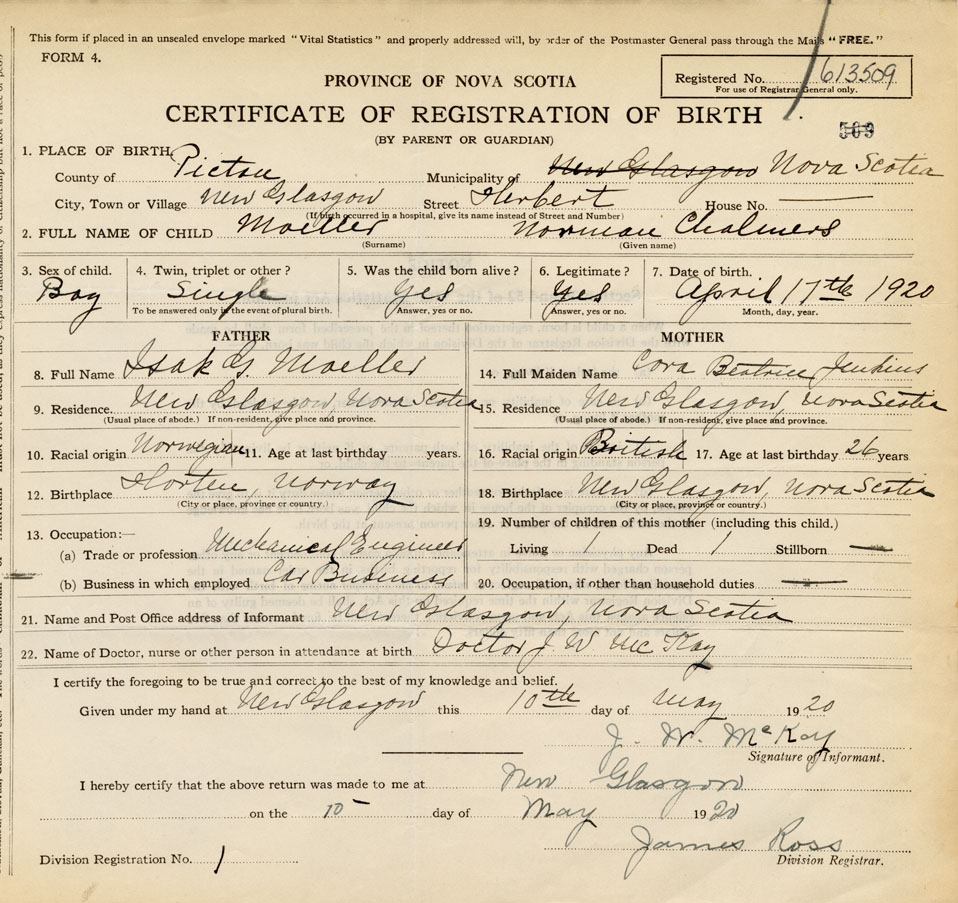 This form if placed in an unsealed envelope marked "Vital Statistics" and properly addressed will, by order of the Postmaster General pass through the Mails "FREE."
FORM 4.
Registered No. 613509
For use of Registrar General only.
PROVINCE OF NOVA SCOTIA
CERTIFICATE OF REGISTRATION OF BIRTH
509
(BY PARENT OR GUARDIAN)
1. PLACE OF BIRTH
County of Pictou Municipality of New Glasgow Nova Scotia
City, Town or Village New Glasgow Street Herbert House No.
(If birth occurred in a hospital, give its name instead of Street and Number)
2. FULL NAME OF CHILD Moeller Norman Chalmers
(Surname) (Given name)
3. Sex of child. 4. Twin, triplet or other? 5. Was the child born alive? 6. Legitimate? 7. Date of birth.
Boy Single Yes Yes April 17th 1920
To be answered only in the event of plural birth. Answer, yes or no. Answer, yes or no. Month, day, year.
FATHER
8. Full Name Isak G. Moeller
9. Residence. New Glasgow, Nova Scotia
(Usual place of abode.) If non-resident, give place and province.
10. Racial origin Norwegian 11. Age at last birthday years.
12. Birthplace Horten, Norway
(City or place, province or country.)
13. Occupation:—
(a) Trade or profession Mechanical Engineer
(b) Business in which employed Car Business
MOTHER
14. Full Maiden Name Cora Beatrice Jenkins
15. Residence New Glasgow, Nova Scotia
(Usual place of abode.) If non-resident, give place and province.
16. Racial origin British 17. Age at last birthday 26 years
18. Birthplace New Glasgow, Nova Scotia
(City or place, province or country.)
19. Number of children of this mother (including this child.)
Living 1 Dead 1 Stillborn —
20. Occupation, if other than household duties —
21. Name and Post Office address of Informant New Glasgow, Nova Scotia
22. Name of Doctor, nurse or other person in attendance at birth Doctor J W McKay
I certify the foregoing to be true and correct to the best of my knowledge and belief.
Given under my hand at New Glasgow this 10th day of May 1920
J. W. McKay
Signature of Informant.
I hereby certify that the above return was made to me at New Glasgow
on the 10 day of May 1920
James Ross
Division Registrar.
Division Registration No. 1